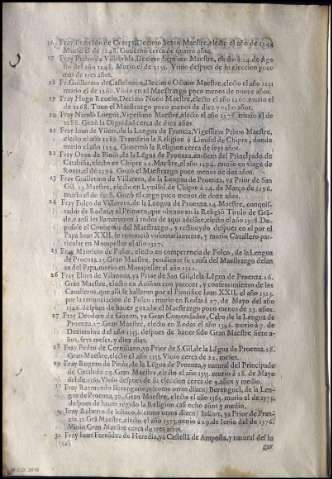 16 Fray Guillen de Decimo Sexto Maestre, electo el año de
Murio el de 1248. Governò cerca de quatro años.
17 Fray Pedro de Villebrida, Decimo Septimo Maestre, electo à 24. de Agosto
del año de 1248. Murio el de 1251. Vivio despues de su eleccion poco
mas de tres años.
18 Fr. Guillermo de Castelnovo, Decimo Octavo Maestre, electo el año 1251
murio el de 1260. Vivio en el Maestrazgo poco menos de nueve años.
19 Fray Hugo Revelo, Decimo Nono Maestre, electo el año 1260. murio el
de 1278. Tuvo el Maestrazgo poco menos de diez y ocho años.
20 Fray Nicolàs Lorgne, Vigesimo Maestre, electo el año 1278. murio el de
1288. Gozò la Dignidad cerca de diez años.
21 Fray Iuan de Viliers, de la Lengua de Francia, Vigesimo Primo Maestre,
electo el año 1288. Transfirio la Religion à Limisol de Chipre, donde
murio el año 1294. Governò la Religion cerca de seys años.
22 Fray Oton de Pinós de la Lengua de Proença, natural del Principado de
Cataluña, electo en Chipre Maestre, año 1294. murio en viage de
Roma, el de 1296. Gozò el Maestrazgo poco menos de dos años.
23 Fray Guillermo de Villaret, de la Lengua de Proença, ya Prior de San
Gil, 23. Maestre, electo en Lymisol de Chipre à 24. de Março de 1296.
murio el de 1308. Gozò el cargo poco menos de doze años.
24 Fray Folco de Villaret, de la Lengua de Proença. 24. Maestre, conquistador
de Rodas, y el Primero que obtuvo en la Religiõ Titulo de Grãde,
y assi les llamaremos à todos de aqui adelãte, electo el año 1308. Depusole
el Convento del Maestrazgo, y restituydo despues en el por el
Papa Iuan XXII. lo renunciò voluntariamente, y murio Cavallero particular
en Mompeller el año 1327.
25 Fray Mauricio de Pañac, electo en competencia de Folco, de la Lengua
de Proença 25. Gran Maestre, pendiente la causa del Maestrazgo delante
del Papa, murio en Mompeller el año 1321.
26 Fray Elion de Vilanova, ya Prior de San Gil, de la Lẽgua de Proença. 26.
Gran Maestre, electo en Aviñon con parecer y consentimiento de los
Cavalleros, que alli se hallaron por el Pontifice Iuan XXII. el año 1323.
por la renunciacion de Folco: murio en Rodas à 27. de Mayo del año
1346. despues de haver gozado el Maestrazgo poco menos de 23. años.
27 Fray Deodato de Gozon, ya Gran Comendador, Cabo de la Lengua de
Proença. 27. Gran Maestre, electo en Rodas el año 1346. murio à 7. de
Deziembre del año 1353. despues de haver sido Gran Maestre siete años,
seys meses, y diez dias.
28 Fray Pedro de Cornillano, ya Prior de S. Gil de la Lẽgua de Proença. 28.
Gran Maestre, electo el año 1353. Vivio cerca de 21. meses.
29 Fray Rogero de Pinós, de la Lẽgua de Proença, y natural del Principado
de Cataluña, 29. Gran Maestre electo el año 1355. murio à 28. de Mayo
del año 1365. Vivio despues de su eleccion cerca de 9. años y medio.
30 Fray Raymundo Berenguer (ò como otros dizen) Beringuel, de la Lengua
de Proença, 30. Gran Maestre, electo el año 1365. murio el de 1374.
despues de haver regido la Religion casi ocho años y medio.
31 Fray Roberto de Iuliaco, (ò como otros dizen) Iuliars, ya Prior de Francia,
31. Grã Maestre, electo el año 1373. murio à 29. de Iunio del de 1376.
Vivio Gran Maestre cerca de tres años.
32 Fray Iuan Fernãdez de Heredia, ya Castellã de Amposta, y natural del lugar